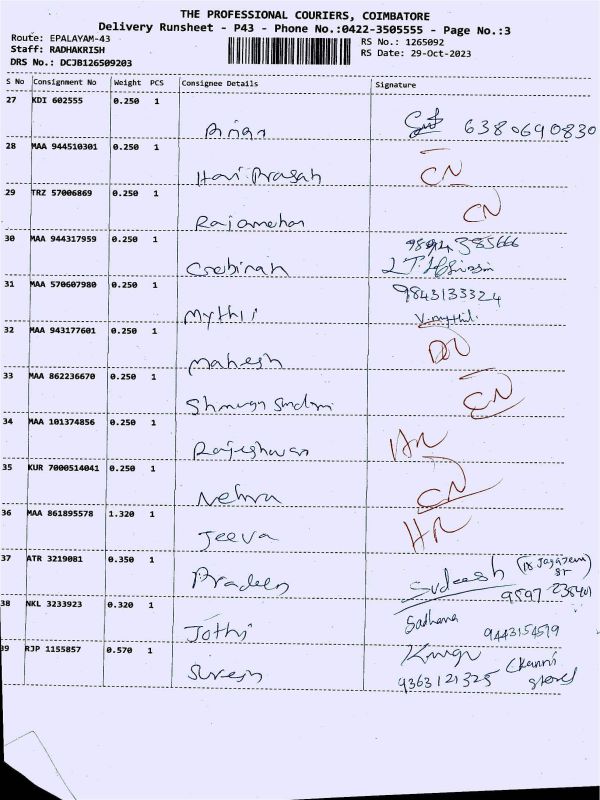 THE PROFESSIONAL COURIERS, COIMBATORE
Delivery Runsheet - P43 - Phone No.:0422-3505555 - Page No.:3
Route: EPALAYAM-43
Staff: RADHAKRISH
DRS No.: DCJB126509203
RS No.: 1265092
RS Date: 29-Oct-2023
S No Consignment No Weight PCS Consignee Details Signature
27 KDI 602555 0.250 1
6380690830
28 MAA 944510301 0.250 1
Hari Prasath CN
29 TRZ 57006869 0.250 1
Rajamohan CN
30 MAA 944317959 0.250 1
31 MAA 570607980 0.250 1
9843133324
Mythili V.mythili
32 MAA 943177601 0.250 1
Mahesh
33 MAA 862236670 0.250 1
CN
34 MAA 101374856 0.250 1
Rajeshwari
35 KUR 7000514041 0.250 1
Nehru CN
36 MAA 861895578 1.320 1
Jeeva
37 ATR 3219081 0.350 1
Pradeep Sudeesh
38 NKL 3233923 0.320 1
Sadhana
Jothi
39 RJP 1155857 0.570 1
Suresh 9363121325